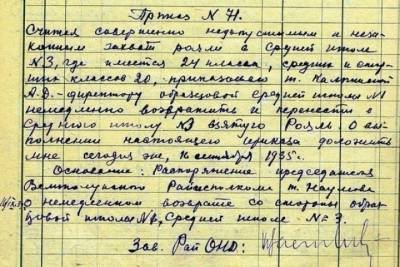 Приказ N 71.
Считая совершенно недопустимым и неза-
конным захват рояля в Средней школе
N3, где имеется 24 класса, средних и
классов 20, приказываю т.
А.Д. – директору образцовой средней школы N1
немедленно возвратить и перенести в
Среднюю школу N3 взятую Рояль. О вы-
полнении настоящего приказа доложить
мне сегодня же, 16 сентября 1935 г.
Основание: Распоряжение председателя
Великолукского Райисполкома т. Наумова
о немедленном возврате со стороны образ-
цовой школы N1, Средней школе N=3.
Зав. Рай ОНО: